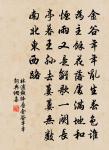 金谷年年亂生春色誰
為主餘花落處滿地和
煙雨又是離歌一闋長
亭暮王孫去萋萋無數
南北東西路
林逋點絳唇金谷年年